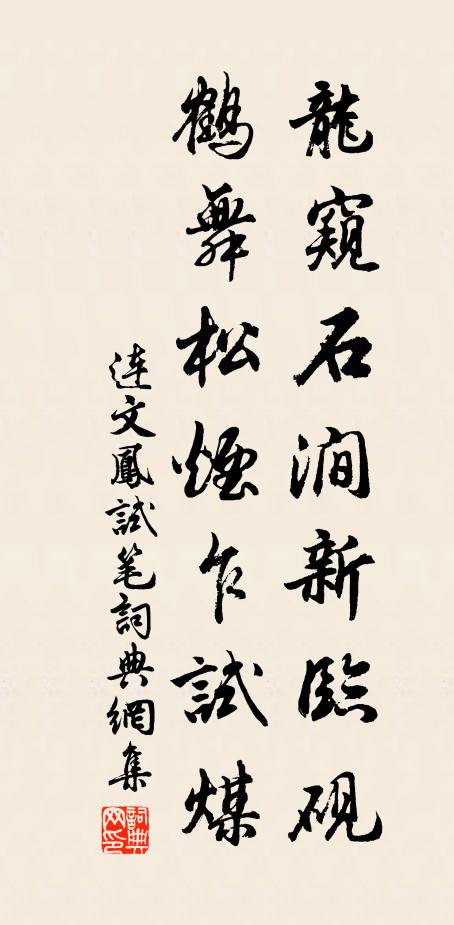 龍窺石澗新臨硯
鶴舞松煙乍試煤
連文鳳試笔詞典網集
詞典网印